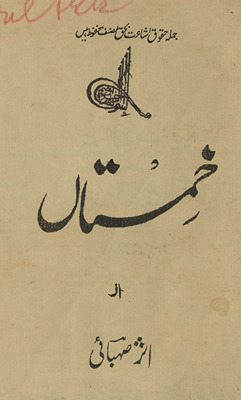 جملہ حقوق اشاعت بحق مصنف محفوظ ہیں
خُمِستاں
از
اثرؔ صہبائی